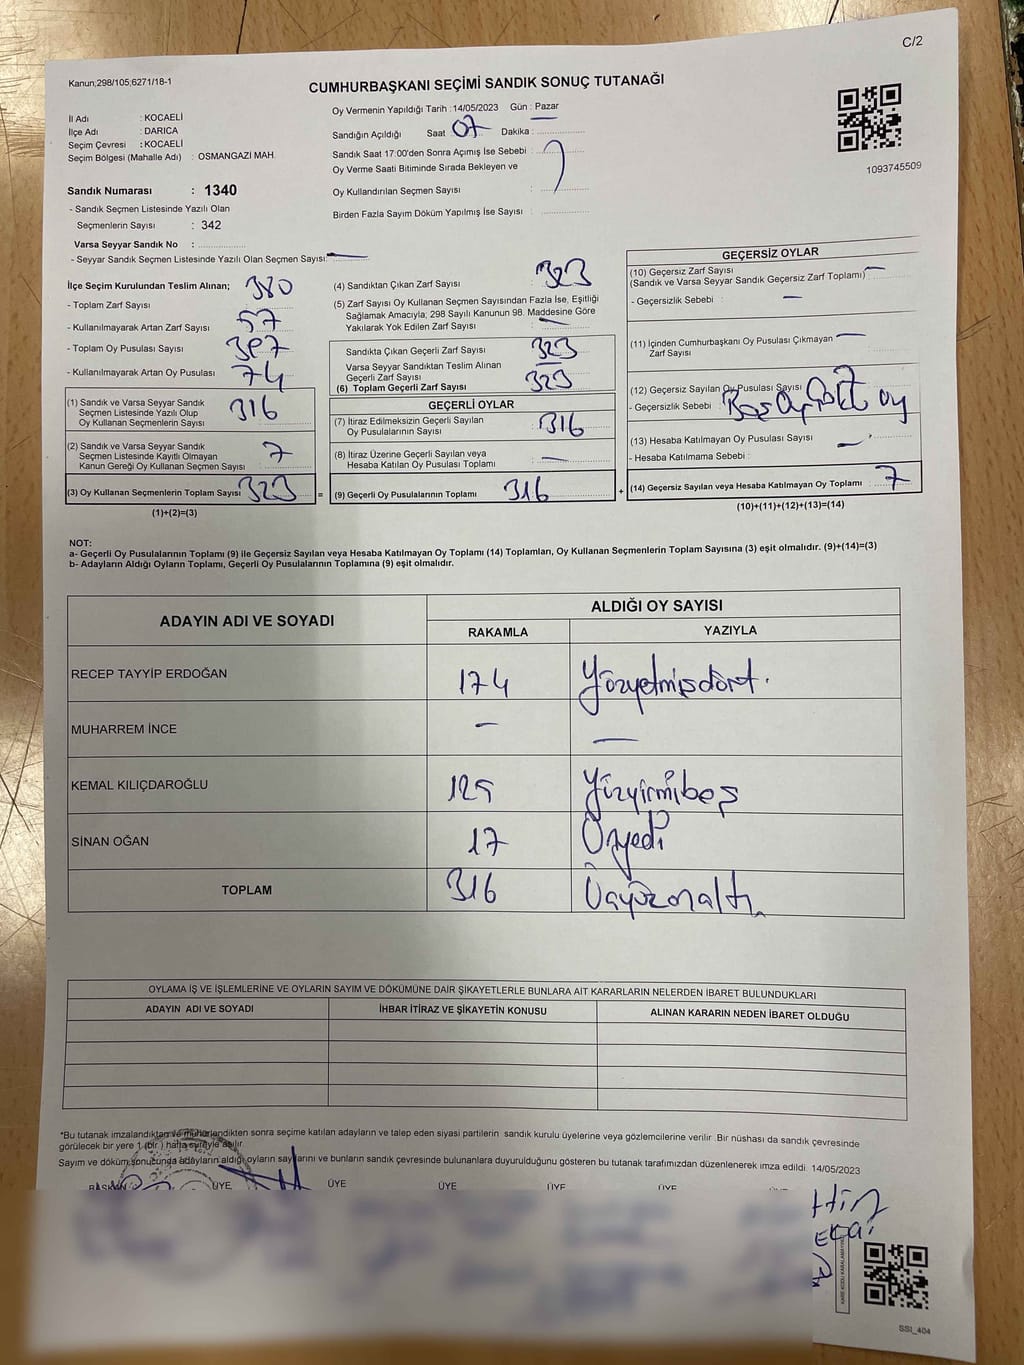 C/2
Kanun;298/105;6271/18-1
CUMHURBAŞKANI SEÇİMİ SANDIK SONUÇ TUTANAĞI
İl Adı : KOCAELİ
İlçe Adı : DARICA
Seçim Çevresi : KOCAELİ
Seçim Bölgesi (Mahalle Adı) : OSMANGAZİ MAH.
Sandık Numarası : 1340
- Sandık Seçmen Listesinde Yazılı Olan
Seçmenlerin Sayısı : 342
Varsa Seyyar Sandık No :
- Seyyar Sandık Seçmen Listesinde Yazılı Olan Seçmen Sayısı: —
Oy Vermenin Yapıldığı Tarih : 14/05/2023 Gün : Pazar
Sandığın Açıldığı Saat 07 Dakika :
Sandık Saat 17:00'den Sonra Açımış İse Sebebi :
Oy Verme Saati Bitiminde Sırada Bekleyen ve
Oy Kullandırılan Seçmen Sayısı :
Birden Fazla Sayım Döküm Yapılmış İse Sayısı :
1093745509
İlçe Seçim Kurulundan Teslim Alınan; 380
- Toplam Zarf Sayısı
- Kullanılmayarak Artan Zarf Sayısı : 57
- Toplam Oy Pusulası Sayısı : 397
- Kullanılmayarak Artan Oy Pusulası : 74
(1) Sandık ve Varsa Seyyar Sandık
Seçmen Listesinde Yazılı Olup
Oy Kullanan Seçmenlerin Sayısı : 316
(2) Sandık ve Varsa Seyyar Sandık
Seçmen Listesinde Kayıtlı Olmayan
Kanun Gereği Oy Kullanan Seçmen Sayısı : 7
(3) Oy Kullanan Seçmenlerin Toplam Sayısı 323 =
(1)+(2)=(3)
(4) Sandıktan Çıkan Zarf Sayısı : 323
(5) Zarf Sayısı Oy Kullanan Seçmen Sayısından Fazla İse, Eşitliği
Sağlamak Amacıyla; 298 Sayılı Kanunun 98. Maddesine Göre
Yakılarak Yok Edilen Zarf Sayısı : —
Sandıkta Çıkan Geçerli Zarf Sayısı : 323
Varsa Seyyar Sandıktan Teslim Alınan
Geçerli Zarf Sayısı
(6) Toplam Geçerli Zarf Sayısı : 323
GEÇERLİ OYLAR
(7) İtiraz Edilmeksizin Geçerli Sayılan
Oy Pusulalarının Sayısı : 316
(8) İtiraz Üzerine Geçerli Sayılan veya
Hesaba Katılan Oy Pusulası Toplamı : —
(9) Geçerli Oy Pusulalarının Toplamı 316 +
GEÇERSİZ OYLAR
(10) Geçersiz Zarf Sayısı —
(Sandık ve Varsa Seyyar Sandık Geçersiz Zarf Toplamı) :
- Geçersizlik Sebebi : —
(11) İçinden Cumhurbaşkanı Oy Pusulası Çıkmayan —
Zarf Sayısı :
(12) Geçersiz Sayılan Oy Pusulası Sayısı : 7
- Geçersizlik Sebebi oy
(13) Hesaba Katılmayan Oy Pusulası Sayısı : —
- Hesaba Katılmama Sebebi :
(14) Geçersiz Sayılan veya Hesaba Katılmayan Oy Toplamı : 7
(10)+(11)+(12)+(13)=(14)
NOT:
a- Geçerli Oy Pusulalarının Toplamı (9) ile Geçersiz Sayılan veya Hesaba Katılmayan Oy Toplamı (14) Toplamları, Oy Kullanan Seçmenlerin Toplam Sayısına (3) eşit olmalıdır. (9)+(14)=(3)
b- Adayların Aldığı Oyların Toplamı, Geçerli Oy Pusulalarının Toplamına (9) eşit olmalıdır.
ADAYIN ADI VE SOYADI ALDIĞI OY SAYISI
RAKAMLA YAZIYLA
RECEP TAYYİP ERDOĞAN 174 Yüzyetmişdört.
MUHARREM İNCE — —
KEMAL KILIÇDAROĞLU 125 Yüzyirmibeş
SİNAN OĞAN 17 Onyedi
TOPLAM 316 Üçyüzonaltı
OYLAMA İŞ VE İŞLEMLERİNE VE OYLARIN SAYIM VE DÖKÜMÜNE DAİR ŞİKAYETLERLE BUNLARA AİT KARARLARIN NELERDEN İBARET BULUNDUKLARI
ADAYIN ADI VE SOYADI İHBAR İTİRAZ VE ŞİKAYETİN KONUSU ALINAN KARARIN NEDEN İBARET OLDUĞU
*Bu tutanak imzalandıktan ve mühürlendikten sonra seçime katılan adayların ve talep eden siyasi partilerin sandık kurulu üyelerine veya gözlemcilerine verilir .Bir nüshası da sandık çevresinde
görülecek bir yere 1 (bir ) hafta süreyle asılır.
Sayım ve döküm sonucunda adayların aldığı oyların sayılarını ve bunların sandık çevresinde bulunanlara duyurulduğunu gösteren bu tutanak tarafımızdan düzenlenerek imza edildi. 14/05/2023
BAŞKAN ÜYE ÜYE ÜYE ÜYE ÜYE
SSI_404